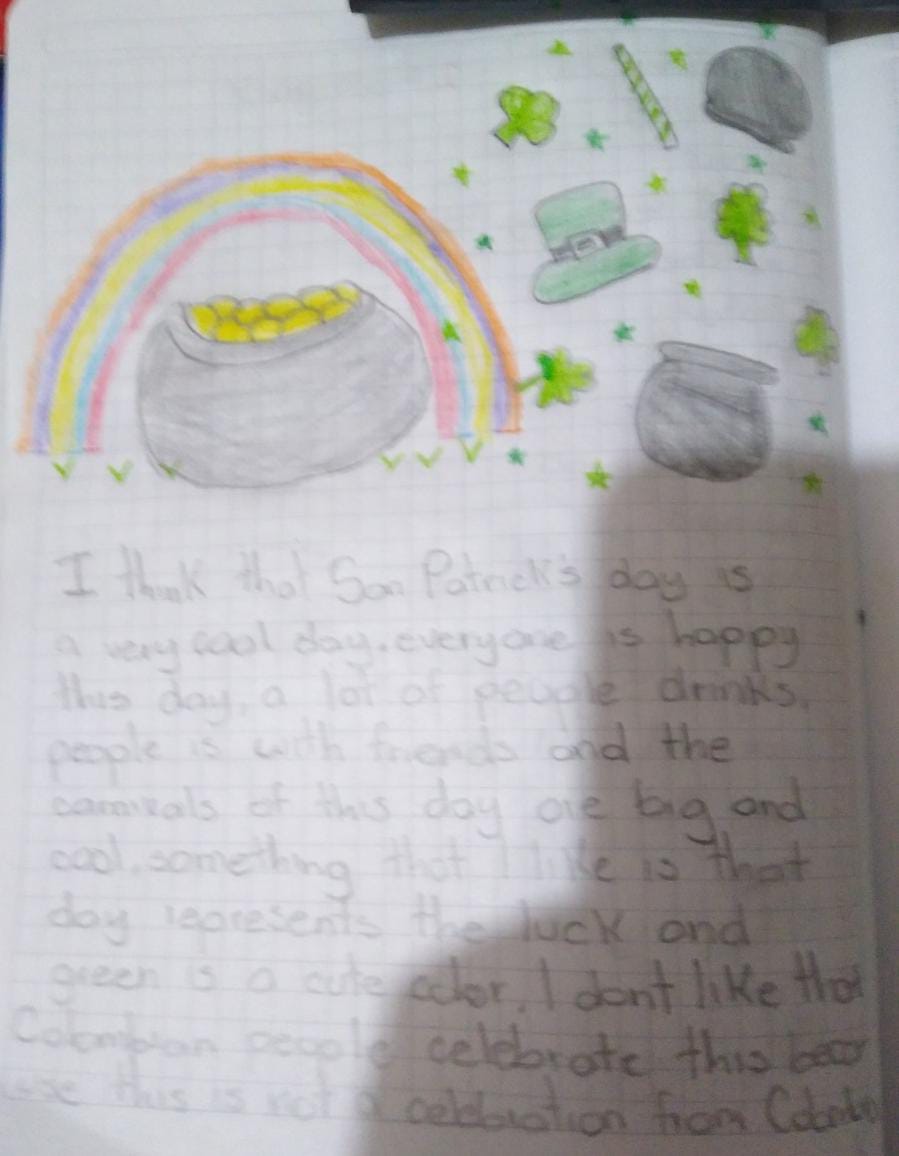 I think that San Patrick's day is
a very cool day. everyone is happy
this day, a lot of people drinks,
people is with friends and the
carnivals of this day are big and
cool. something that I like is that
day represents the luck and
green is a cute color, I dont like that
Colombian people celebrate this beca
use this is not a celebration from Colombia